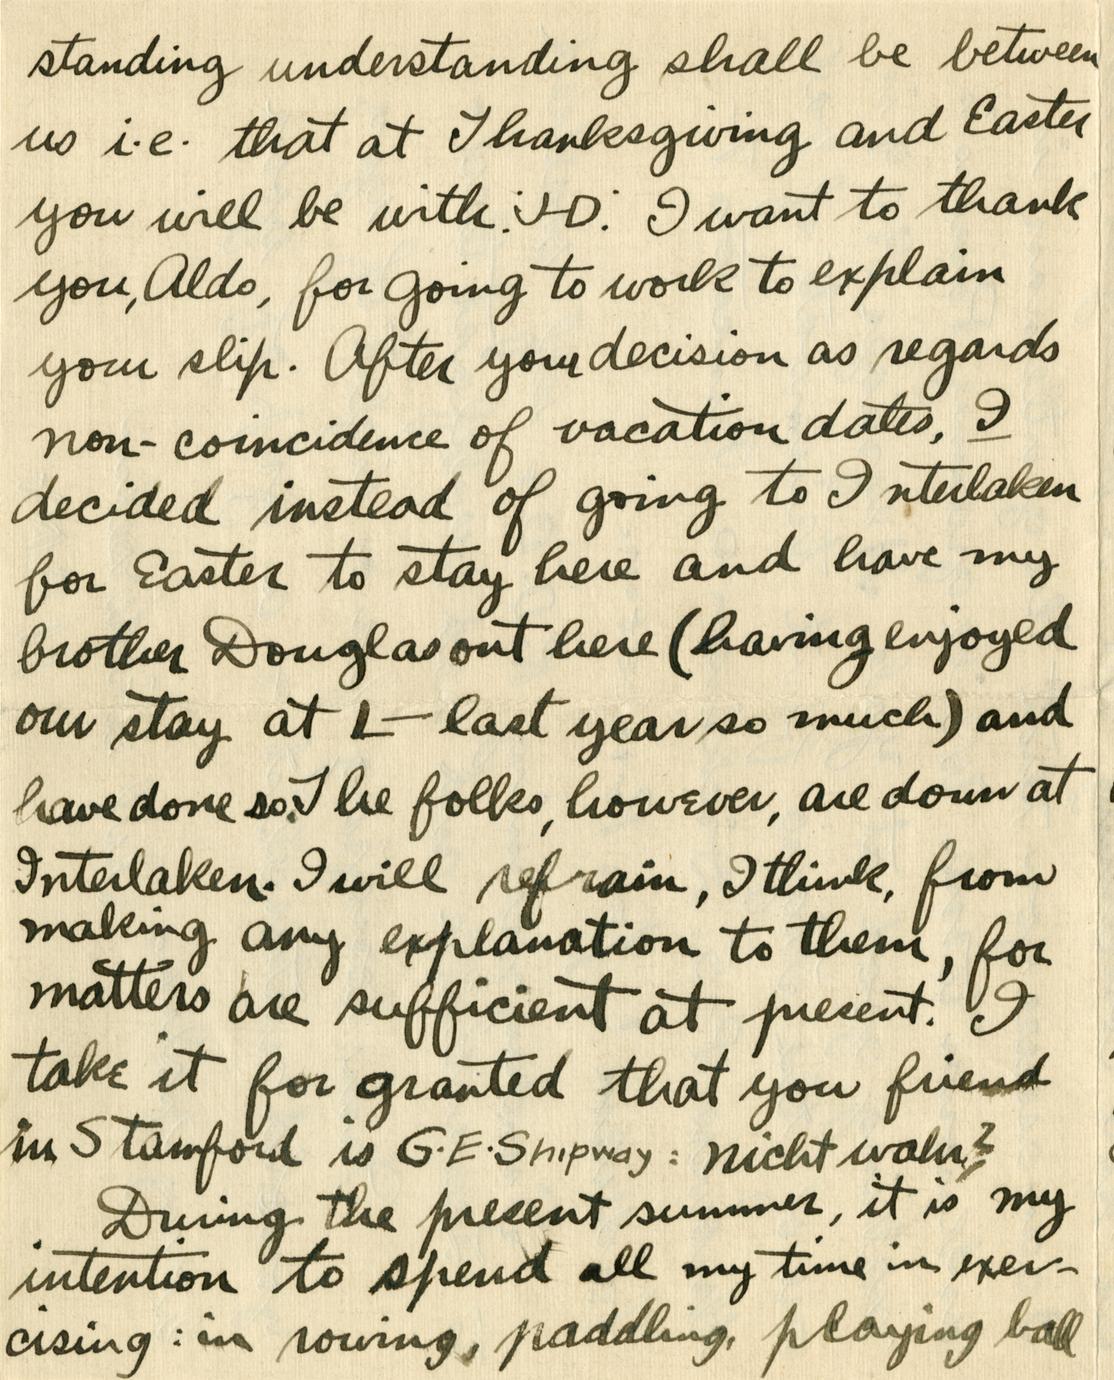 standing understanding shall be between
us i.e. that at Thanksgiving and Easter
you will be with J-D. I want to thank
you, Aldo, for going to work to explain
your slip. After your decision as regards
non-coincidence of vacation dates, I
decided instead of going to Interlaken
for Easter to stay here and have my
brother Douglas out here (having enjoyed
our stay at L— last year so much) and
have done so. The folks, however, are down at
Interlaken. I will refrain, I think, from
making any explanation to them, for
matters are sufficient at present. I
take it for granted that you friend
in Stamford is G.E. Shipway: nicht wahr?
During the present summer, it is my
intention to spend all my time in exer-
cising: in rowing, paddling, playing ball